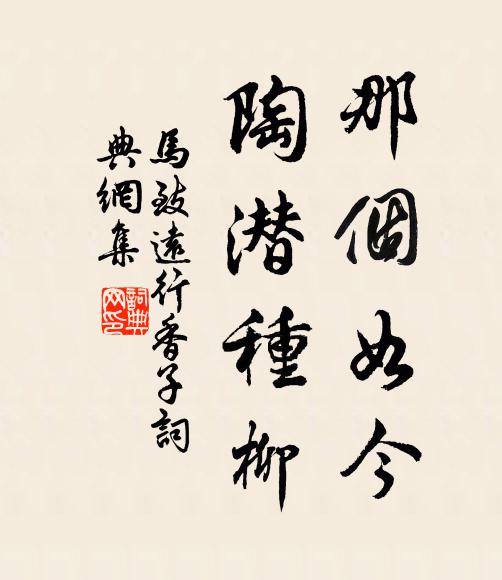 那個如今
陶潜種柳
馬致遠行香子詞
典網集
詞典網印